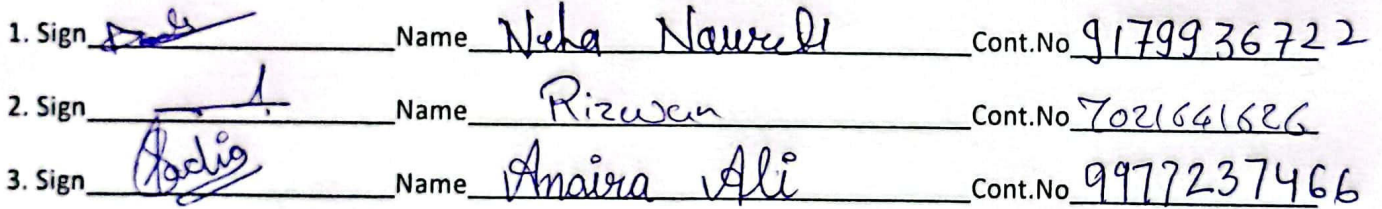 1. Sign Name Neha Cont.No 9179936722
2. Sign Name Rizwan Cont.No 7021641626
3. Sign Name Anaira Ali Cont.No 9977237466